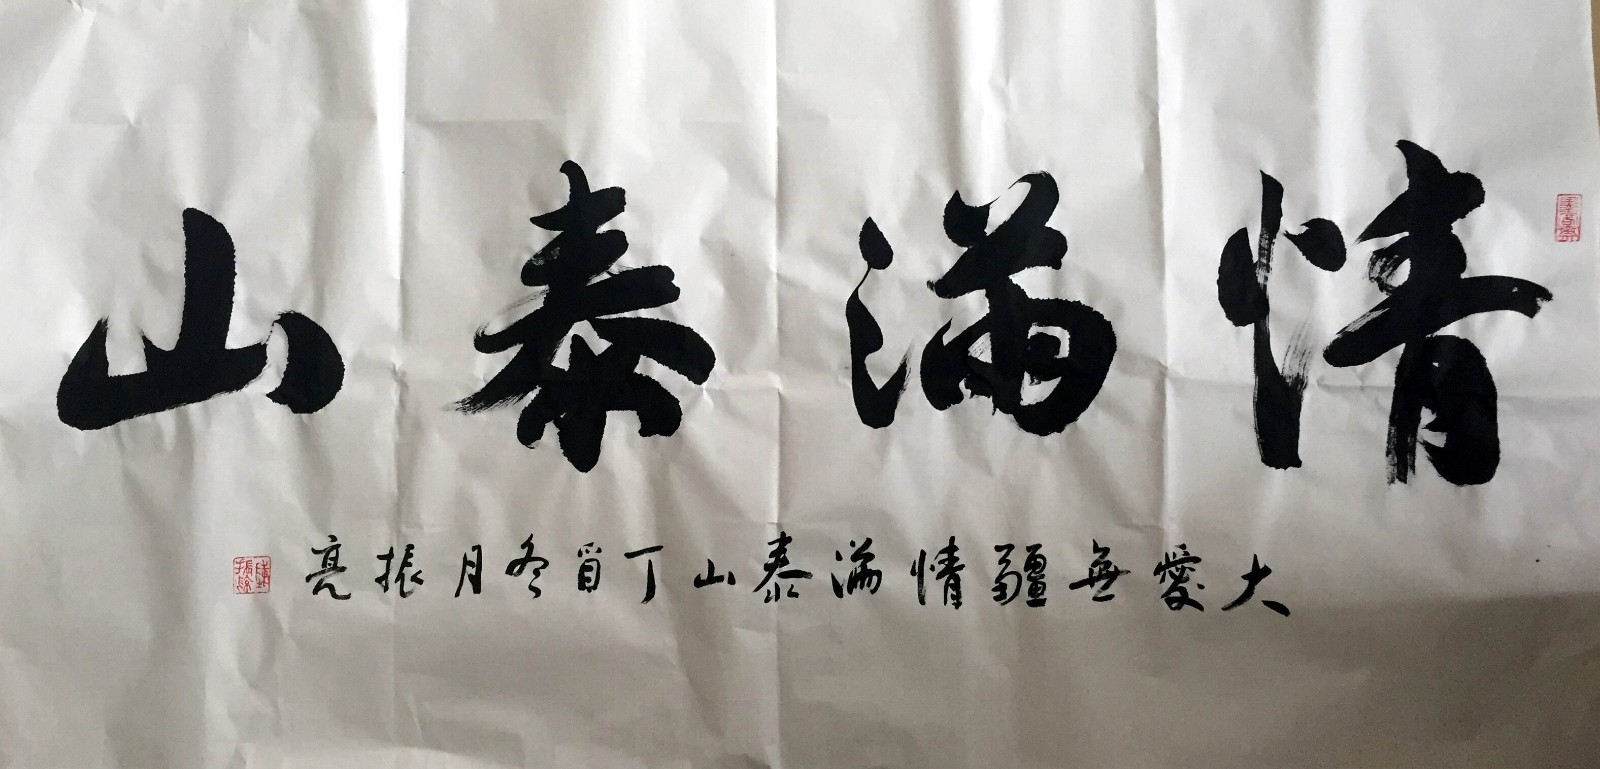 情滿泰山
大愛無疆情滿泰山丁酉冬月振亮